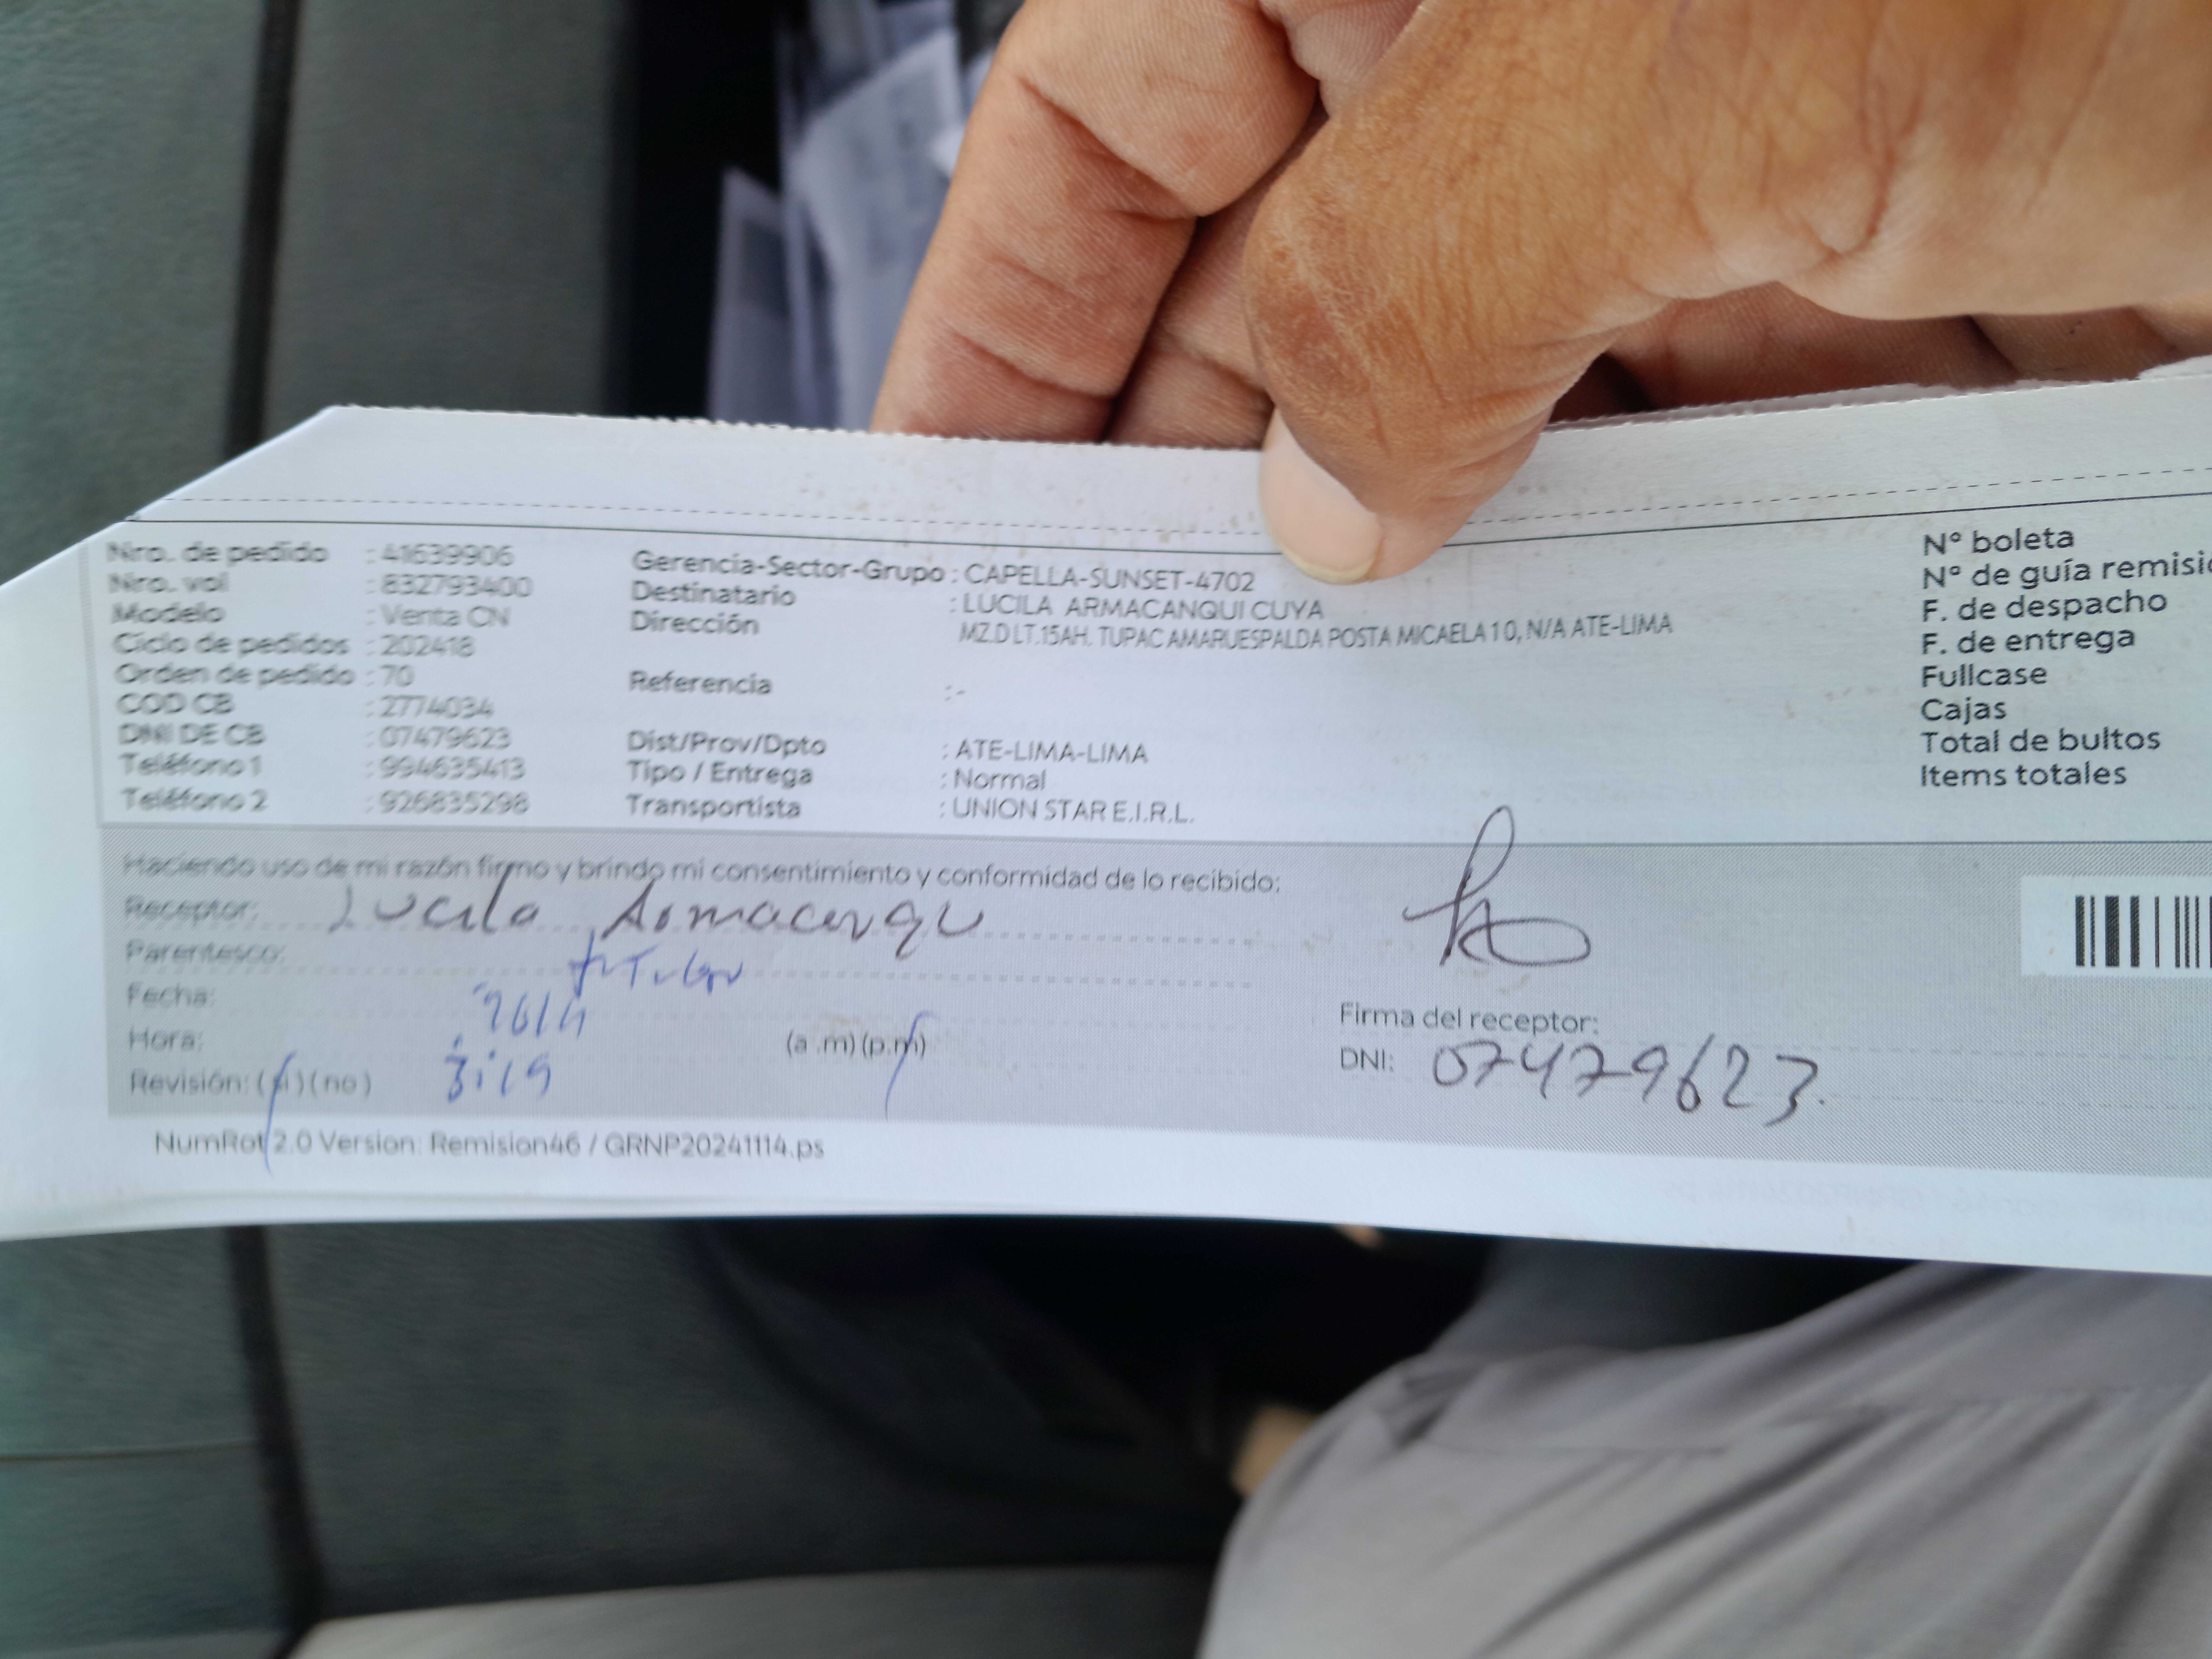 Nro. de pedido : 41639906
Nro. vol : 832793400
Modelo : Venta CN
Ciclo de pedidos : 202418
Orden de pedido : 70
COD CB : 2774034
DNI DE CB : 07479623
Teléfono 1 : 994635413
Teléfono 2 : 926835298
Gerencia-Sector-Grupo : CAPELLA-SUNSET-4702
Destinatario : LUCILA ARMACANQUI CUYA
Dirección MZ.D LT.15AH. TUPAC AMARUESPALDA POSTA MICAELA 1 0, N/A ATE-LIMA
Referencia :-
Dist/Prov/Dpto : ATE-LIMA-LIMA
Tipo / Entrega : Normal
Transportista : UNION STAR E.I.R.L.
N° boleta
N° de guía remisió
F. de despacho
F. de entrega
Fullcase
Cajas
Total de bultos
Items totales
Haciendo uso de mi razón firmo y brindo mi consentimiento y conformidad de lo recibido:
Receptor: Lucila Armacanqu
Parentesco: titular
Fecha:
Hora: (a .m) (p.m)
Revisión: (si) (no)
Firma del receptor:
DNI: 07479623.
NumRot 2.0 Version: Remision46 / GRNP20241114.ps